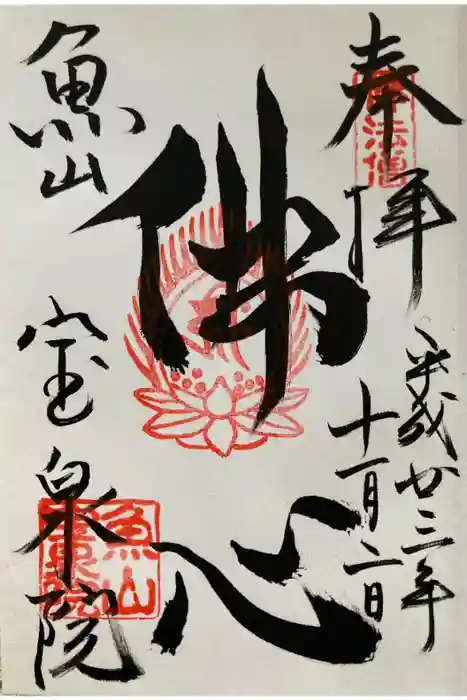 奉拝
平成廿三年
十一月二日
佛心
魚山
宝泉院
佛法僧
魚山
宝泉院